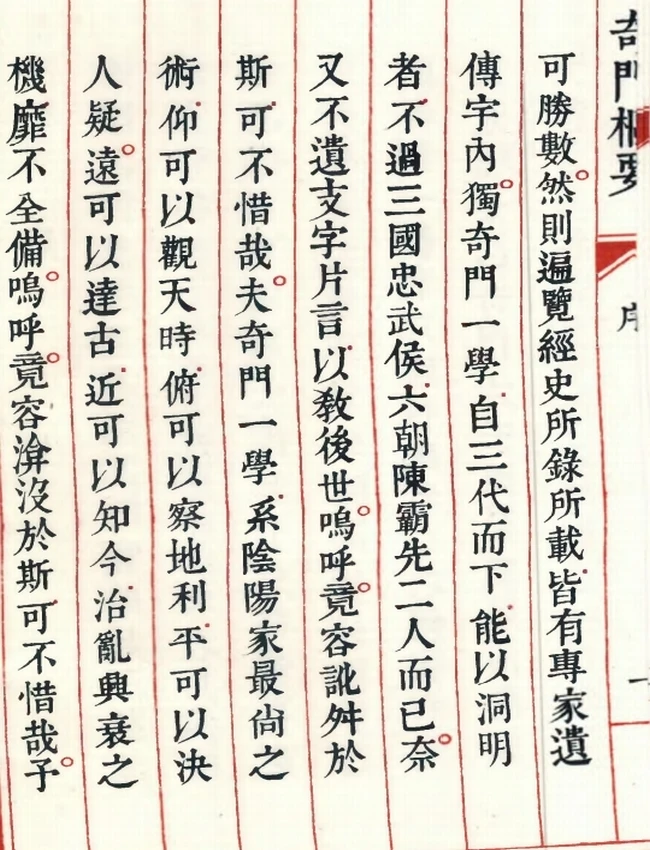 奇門
序
可勝數然則遍覽經史所錄所載皆有專家遺
傳宇內獨奇門一學自三代而下能以洞明
者不過三國忠武侯六朝陳霸先二人而已奈
又不遺支字片言以教後世嗚呼竟容訛舛於
斯可不惜哉夫奇門一學系陰陽家最尙之
術仰可以觀天時俯可以察地利平可以決
人疑遠可以達古近可以知今治亂興衰之
機靡不全備嗚呼竟容渰沒於斯可不惜哉予